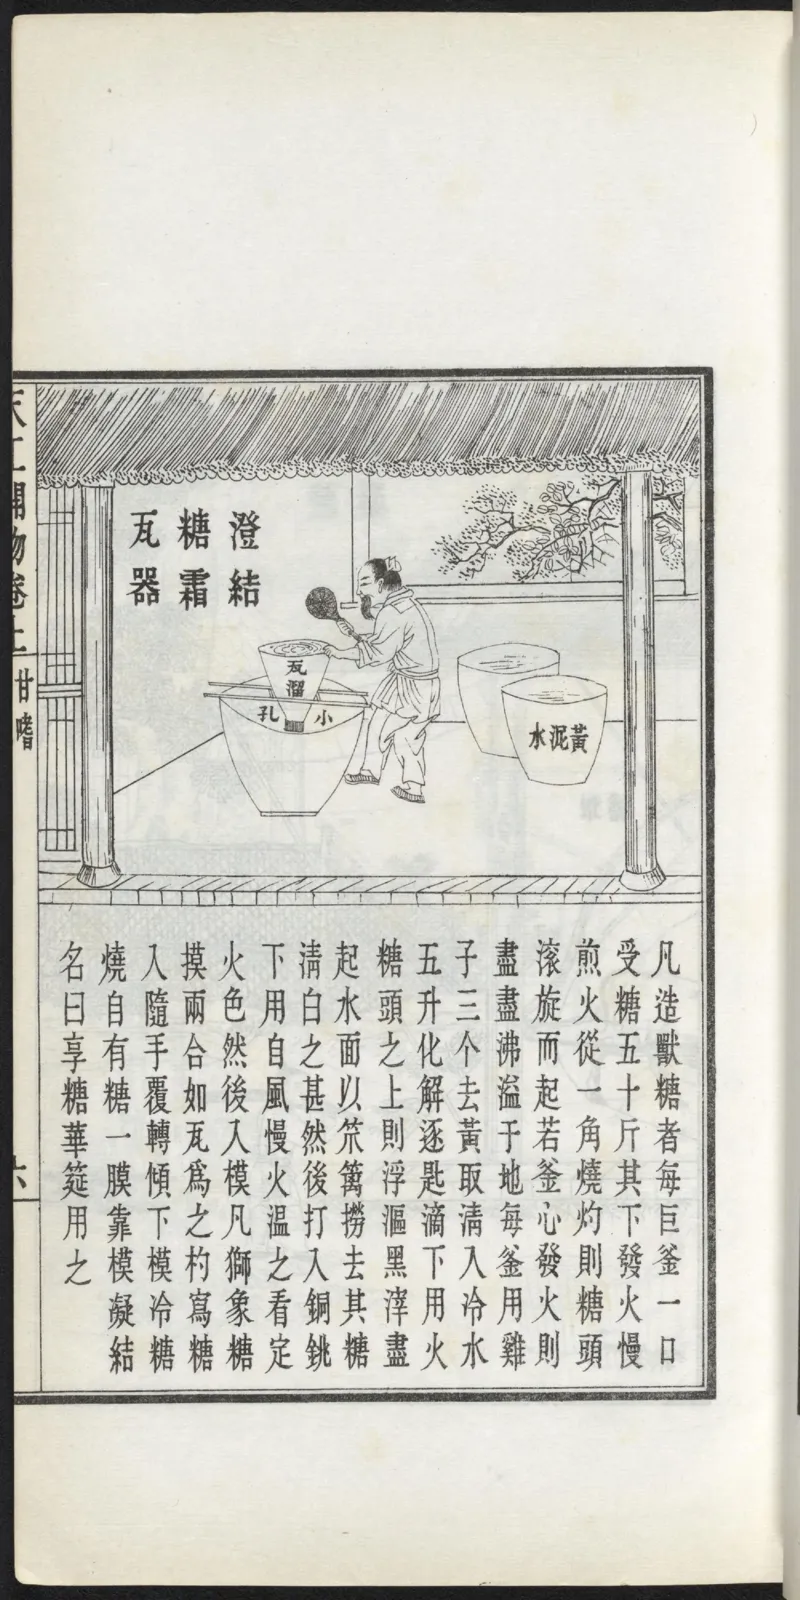 澄結
糖霜
瓦器
瓦溜
小孔
黃泥水
凡造獸糖者每巨釜一口
受糖五十斤其下發火慢
煎火從一角燒灼則糖頭
滚旋而起若釜心發火則
盡盡沸溢于地每釜用雞
子三个去黃取淸入冷水
五升化解逐匙滴下用火
糖頭之上則浮漚黑滓盡
起水面以笊篱撈去其糖
淸白之甚然後打入銅銚
下用自風慢火温之看定
火色然後入模凡獅象糖
摸兩合如瓦爲之杓寫糖
入隨手覆轉傾下模冷糖
燒自有糖一膜靠模凝結
名曰享糖華筵用之
天工開物卷上
甘嗜
六